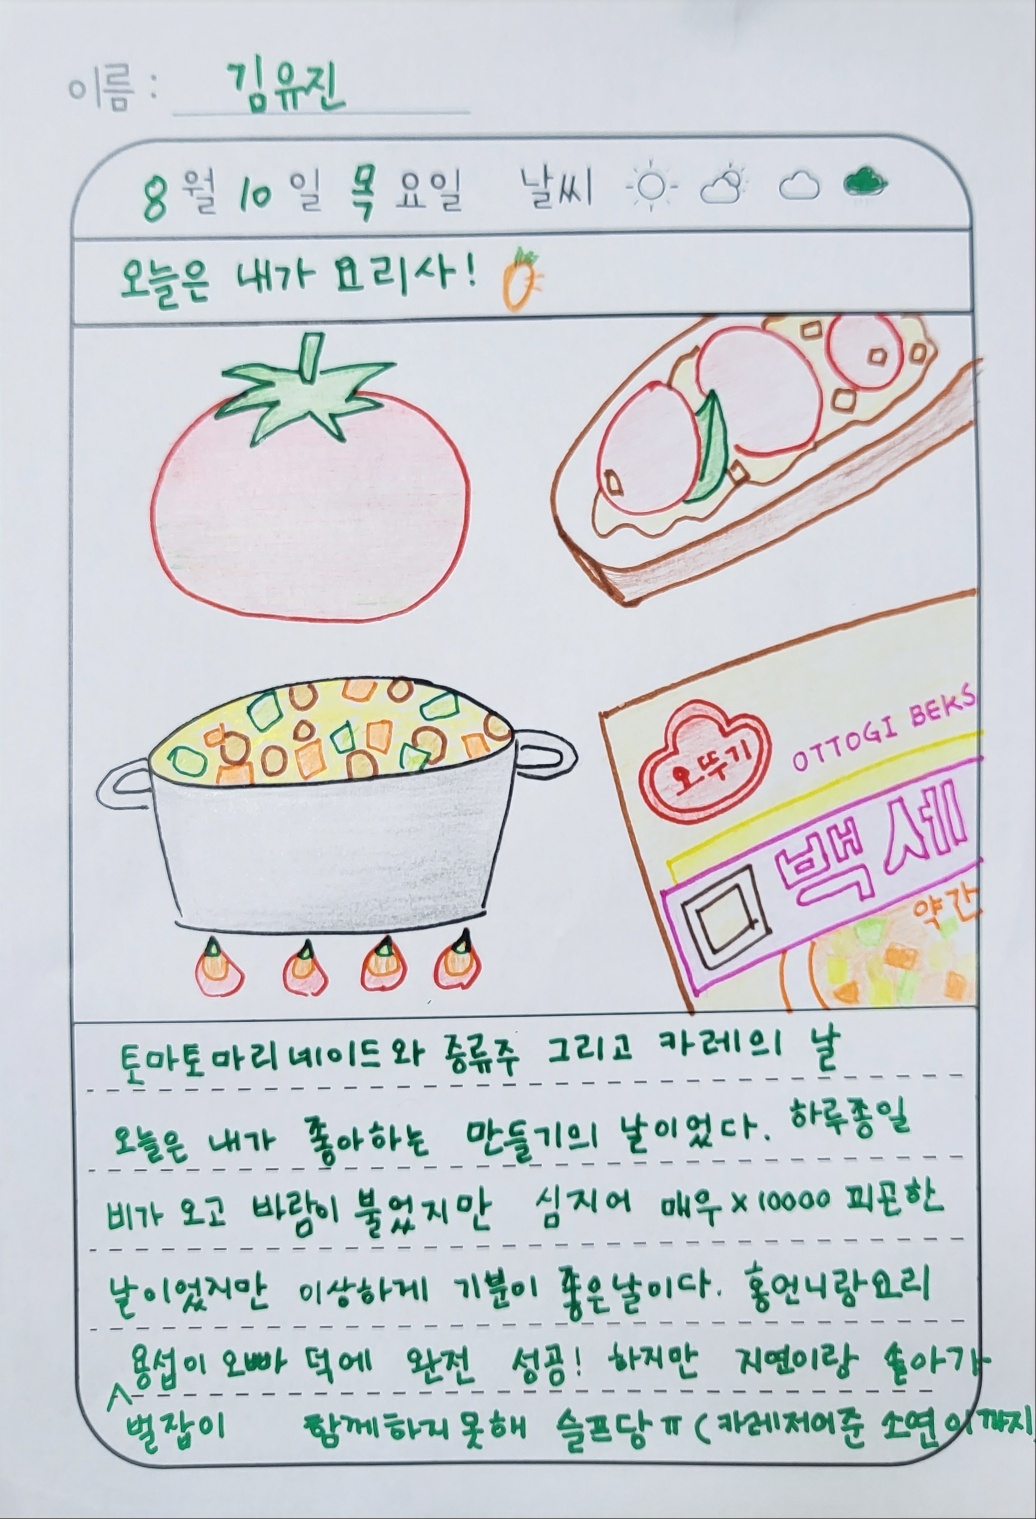 이름: 김유진
8월 10일 목요일 날씨
오늘은 내가 요리사!
오뚜기
OTTOGI BEKS
백세
약간
토마토마리네이드와 종류주 그리고 카레의 날
오늘은 내가 좋아하는 만들기의 날이었다. 하루종일
비가 오고 바람이 불었지만 심지어 매우×10000 피곤한
날이었지만 이상하게 기분이 좋은날이다. 홍언니랑요리
용섭이오빠 덕에 완전 성공! 하지만 지연이랑 솔아가
벌잡이 함께하지못해 슬프당ㅠ(카레저어준 소연이까지